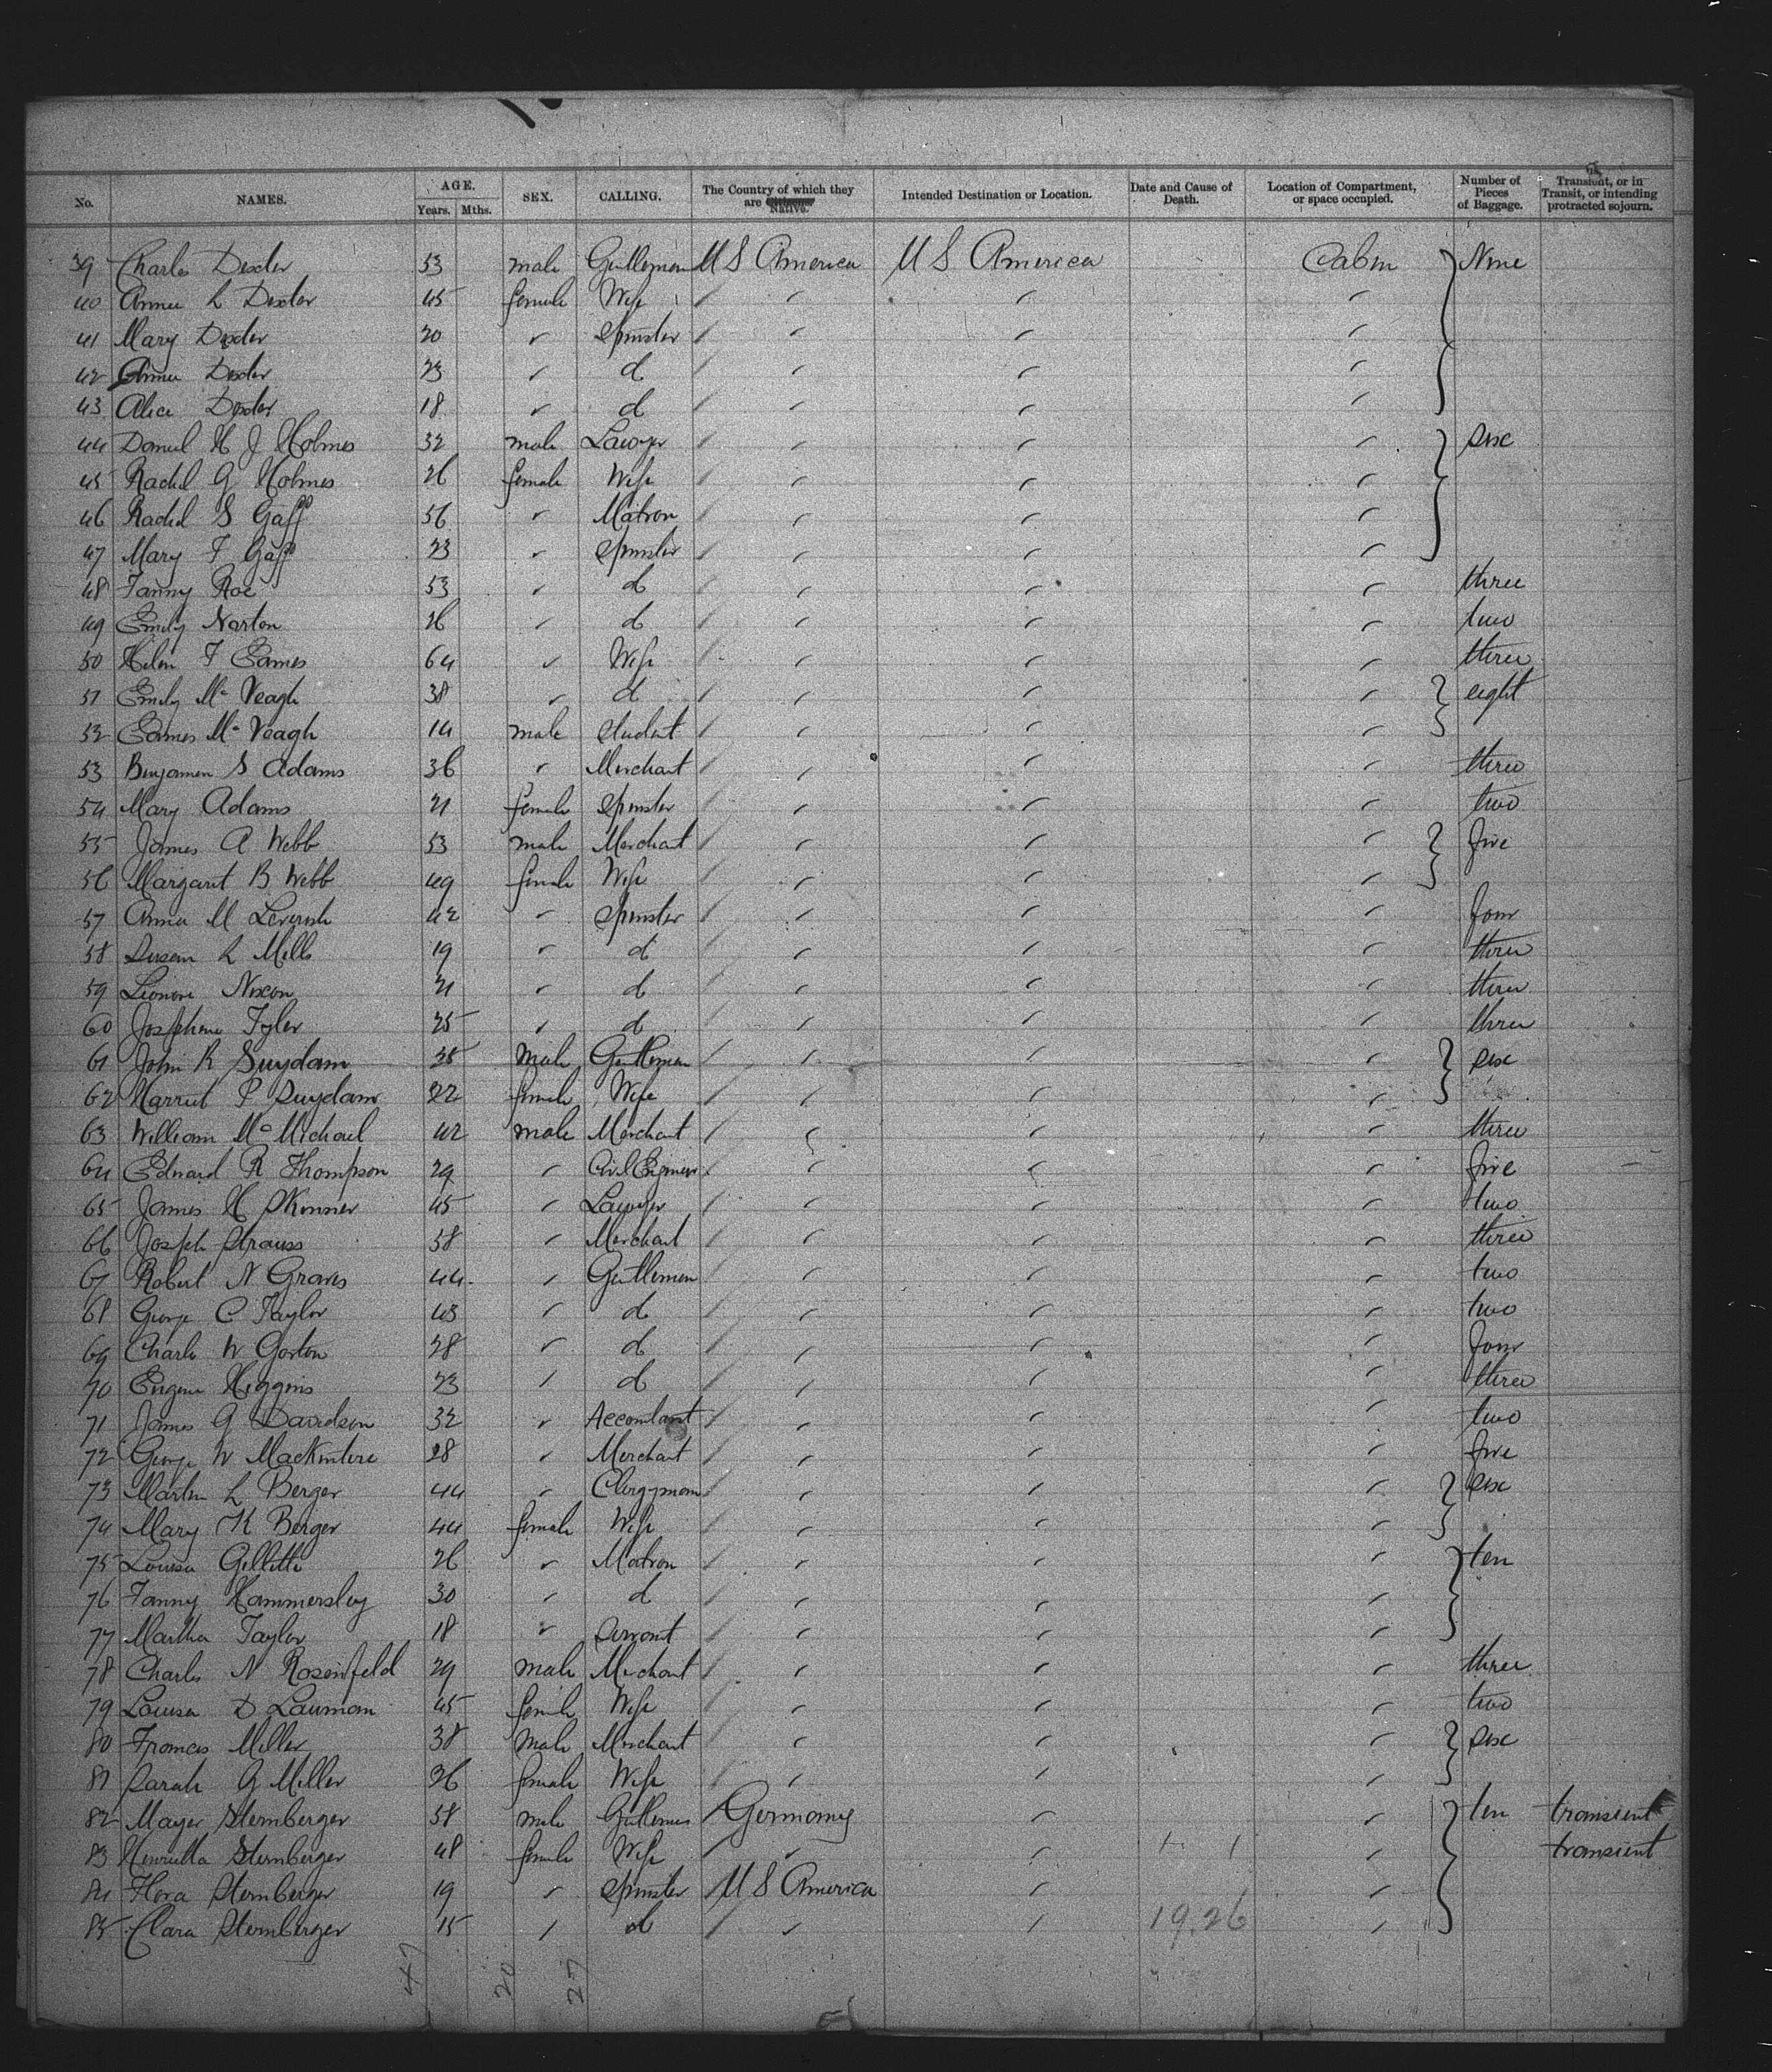 No. NAMES. AGE. Years. Mths. SEX. CALLING. The Country of which they are Native. Intended Destination or Location. Date and Cause of Death. Location of Compartment, or space occupied. Number of Pieces of Baggage. Transient, or in Transit, or intending protracted sojourn.
39 Charles Dexter 53 male Gentleman U S America U S America Cabin Nine
40 Annie L Dexter 45 female Wife
41 Mary Dexter 20 " Spinster
42 Annie Dexter 23 " d
43 Alice Dexter 18 " d
44 Daniel H J Holmes 32 male Lawyer Six
45 Rachel G Holmes 26 female Wife
46 Rachel S Gaff 56 " Matron
47 Mary F Gaff 23 " Spinster
48 Fanny Roe 53 " d three
49 Emily Norton 26 " d two
50 Helen F Eames 64 " Wife three
51 Emily Mc Veagh 38 " d eight
52 Eames Mc Veagh 14 male Student
53 Benjamen S Adams 36 " Merchant three
54 Mary Adams 21 female Spinster two
55 James A Webb 53 male Merchant five
56 Margaret B Webb 49 female Wife
57 Anna M 42 " Spinster four
58 Susan L Mills 19 " d three
59 Leonore Nixon 21 " d three
60 Josephine Tyler 25 " d three
61 John R Suydam 35 Male Gentleman Six
62 Harriet P Suydam 22 female Wife
63 William Mc Michael 42 male Merchant three
64 Edward R Thompson 29 " Civil Engineer five
65 James H Skinner 45 " Lawyer two
66 Joseph Strauss 58 " Merchant three
67 Robert N Graves 44 " Gentleman two
68 George C Taylor 43 " d two
69 Charles W Gorton 28 " d four
70 Eugene Higgins 23 " d three
71 James G Davidson 32 " Accountant two
72 George W Mackintere 28 " Merchant five
73 Martin L Berger 44 " Clergyman Six
74 Mary K Berger 44 female Wife
75 Louisa Gillette 26 " Matron ten
76 Fanny Hammersley 30 " d
77 Martha Taylor 18 " Servant
78 Charles N Rosenfeld 29 male Merchant three
79 Louisa D Lauman 45 female Wife two
80 Frances Miller 38 Male Merchant Six
81 Sarah G Miller 26 female Wife
82 Mayer Sternberger 58 male Gentleman Germany ten transient
83 Henrietta Sternberger 48 female Wife transient
84 Flora Sternberger 19 " Spinster U S America
85 Clara Sternberger 15 " d 19.26
47 20 27